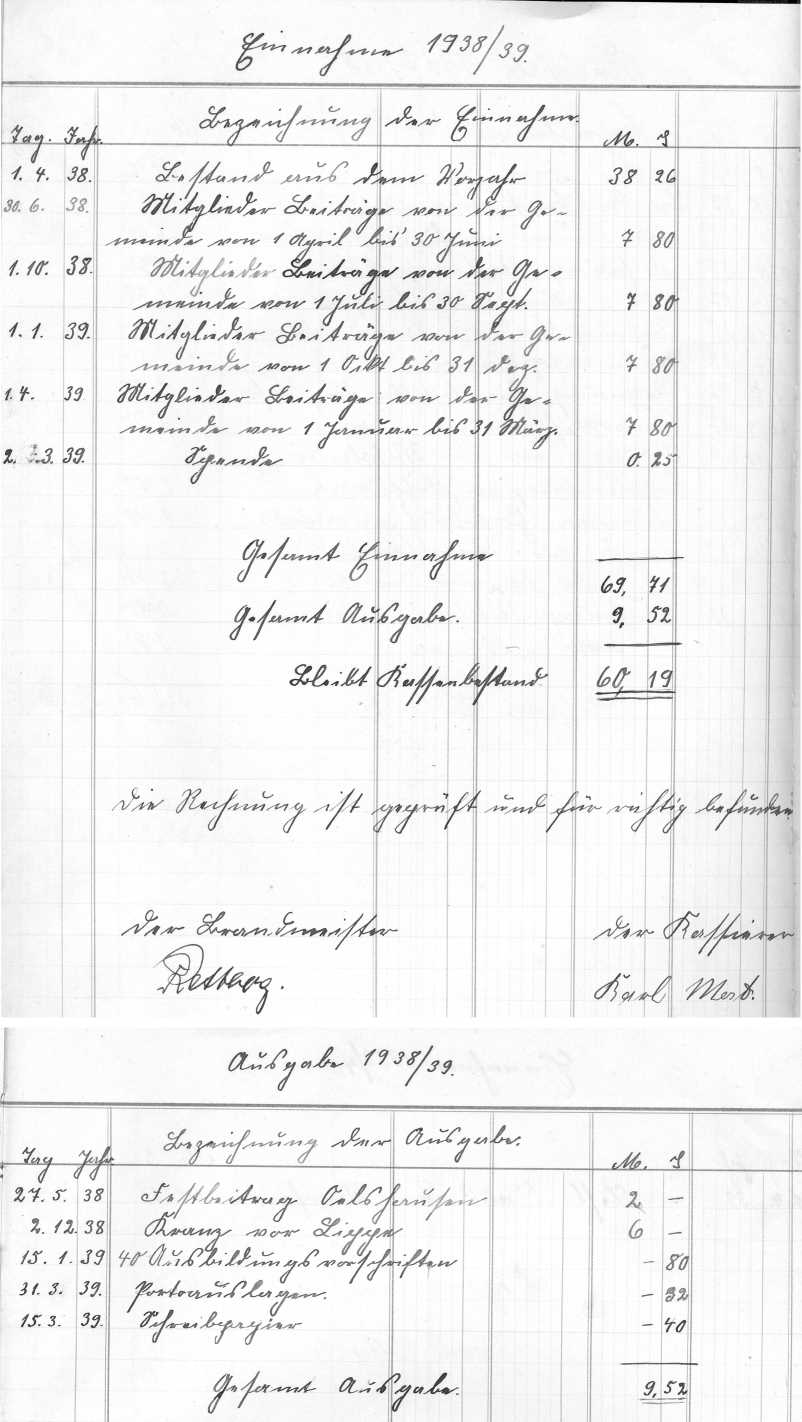 Einnahme 1938/39.
Tag. Jahr. Bezeichnung der Einnahme. M. S
1. 4. 38. Bestand aus dem Vorjahr 38 26
30. 6. 38. Mitglieder Beiträge von der Ge-
meinde von 1 April bis 30 Juni 7 80
1. 10. 38. Mitglieder Beiträge von der Ge-
meinde von 1 Juli bis 30 Sept. 7 80
1. 1. 39. Mitglieder Beiträge von der Ge-
meinde von 1 Okt bis 31 dez. 7 80
1. 4. 39 Mitglieder Beiträge von der Ge-
meinde von 1 Januar bis 31 März. 7 80
2. 3. 39. Spende 0. 25
Gesamt Einnahme
69, 71
Gesamt Ausgabe. 9, 52
Bleibt Kassenbestand 60, 19
die Rechnung ist geprüft und für richtig befunden
der Brandmeister der Kassierer
Rettberg. Karl
Ausgabe 1938/39.
Tag Jahr Bezeichnung der Ausgabe. M. S
27. 5. 38 Festbeitrag Oelshausen 2 –
2. 12. 38 Kranz vor Lippe 6 –
15. 1. 39 40 Ausbildungsvorschriften – 80
31. 3. 39. Portoauslagen. – 32
15. 3. 39. Schreibpapier – 40
Gesamt Ausgabe. 9, 52